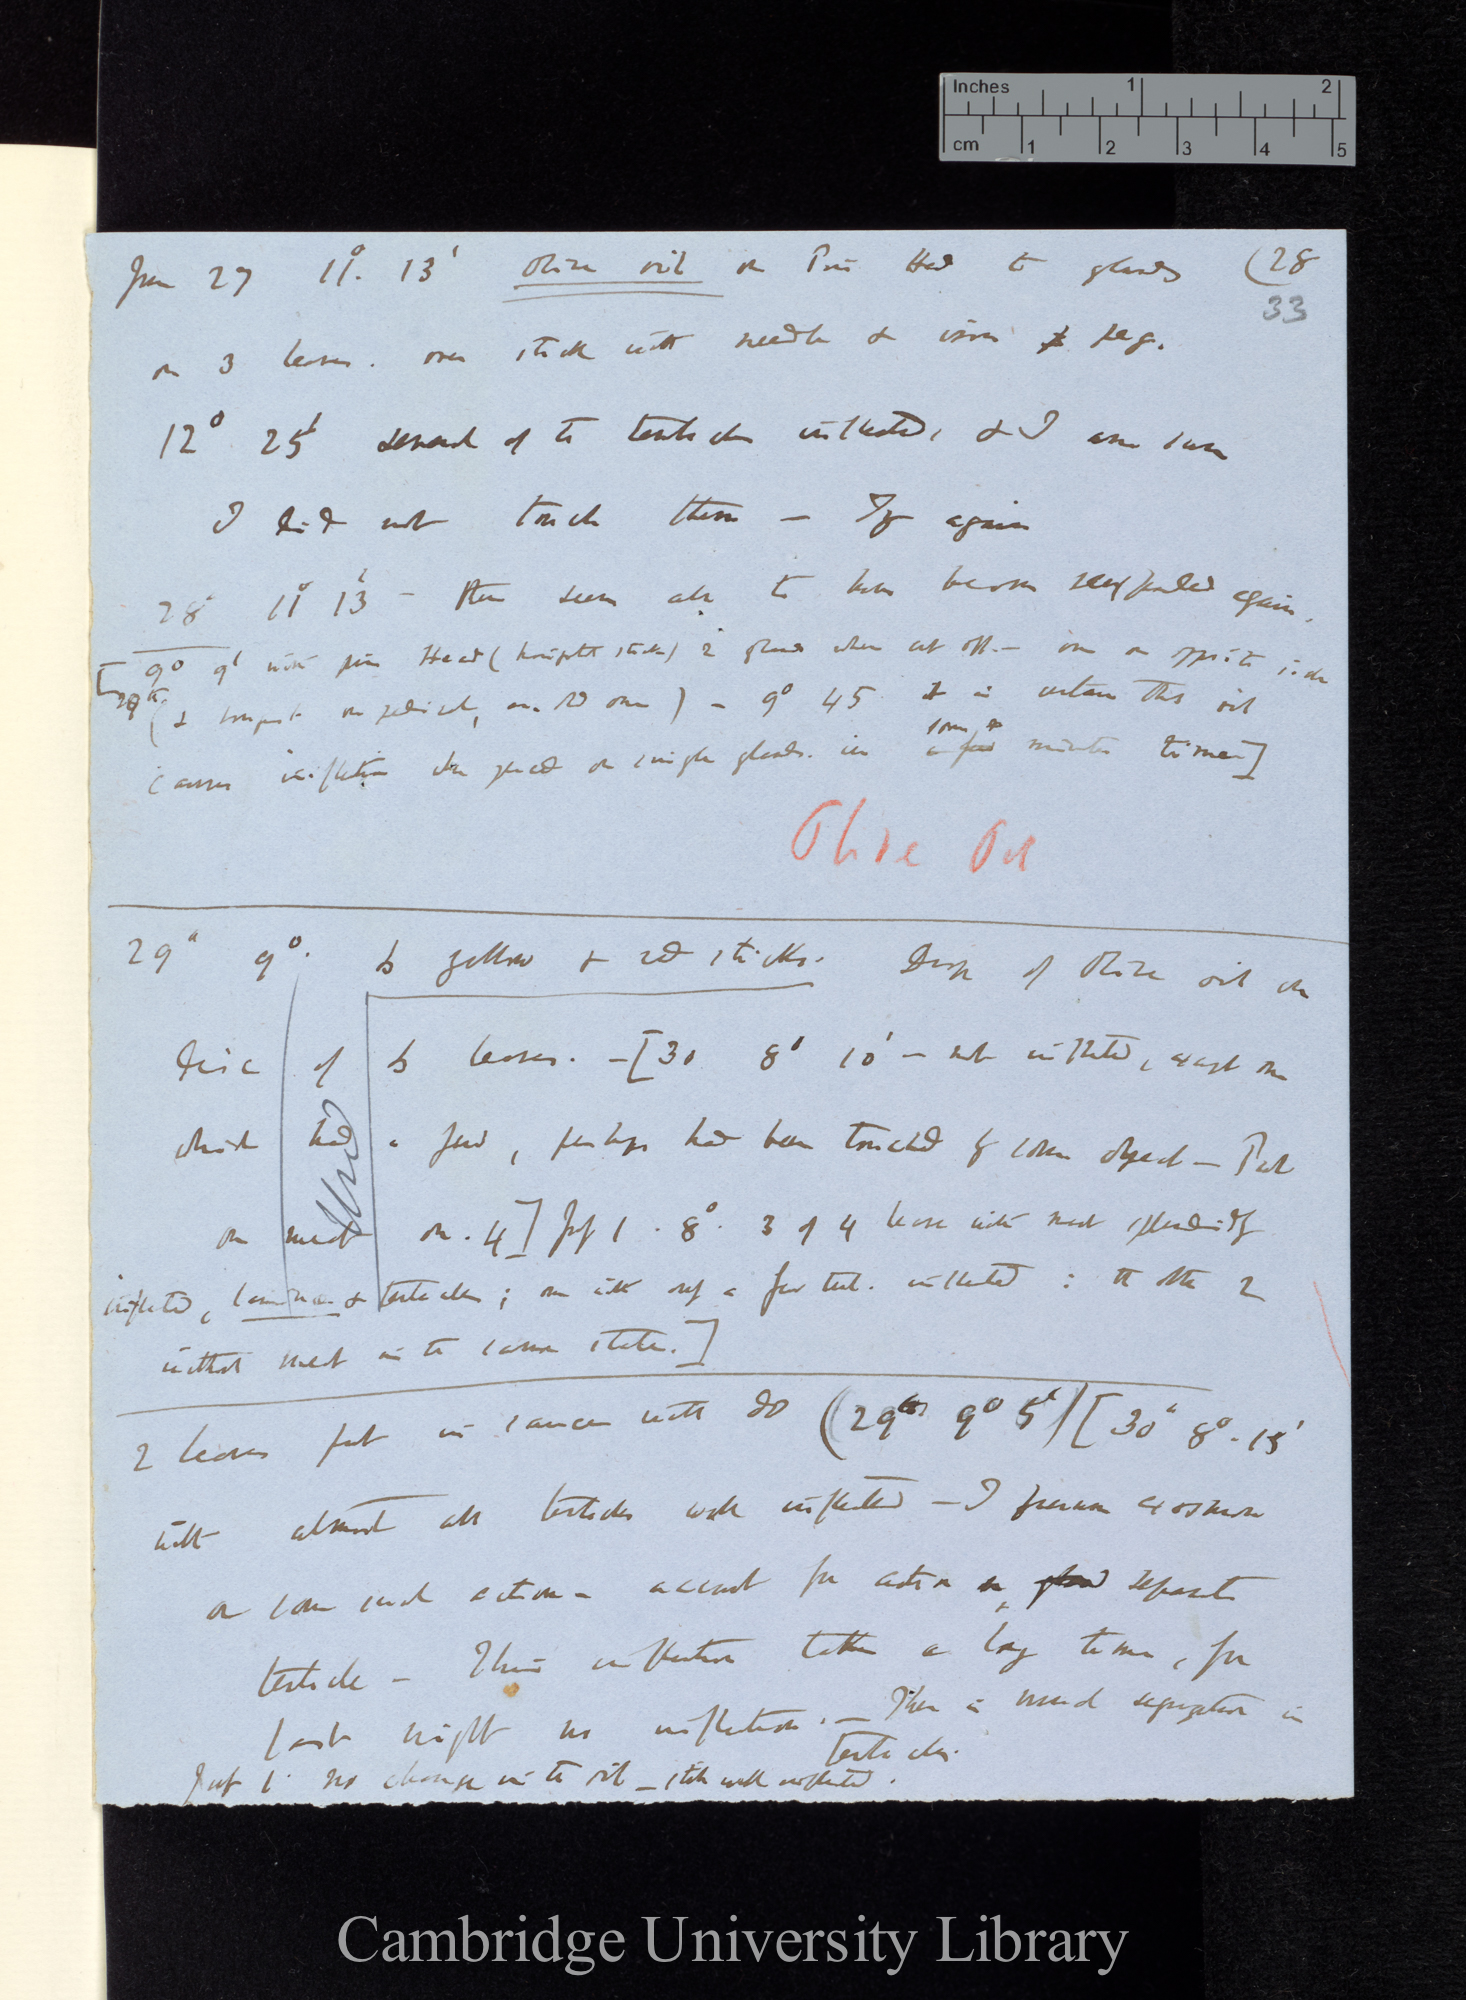 Inches 1 2
cm 1 2 3 4 5
June 27 11°. 13' Olive oil on Pin Head to glands (28
33
on 3 leaves. one stick with needle & iron peg.
12° 25' several of the tentacles inflected, & I am sure
I did not touch them — Try again
28th 11° 13' — these seem all to have become reexpanded again.
[ 9° 9' with pin Head ( stick) 2 glands when cut off. — one on opposite side
29th ( & on pedicel, red one) — 9° 45 it is certain that oil
causes inflection when placed on single glands. in some minutes time]
Olive Oil
29th 9°. 6 yellow & red sticks. Drop of Olive oil on
disc of 6 leaves. — [30 8° 10' — not inflected, except one
which had a few, perhaps had been touched by some object — Put
on meat on. 4] July 1. 8°. 3 of 4 leaves with meat splendidly
Used
inflected, laminae & tentacles; one with only a few tent. inflected: the other 2
without meat in the same state.]
2 leaves put in saucer with do (29th 9° 5') [30th 8°. 15'
with almost all tentacles well inflected — I presume exosmose
or some such action — account for action on separate
tentacle — This inflection takes a long time, for
last night no inflection. — There is usual segregation in
tentacles.
July 1. no change in the oil — still well inflected.
Cambridge University Library